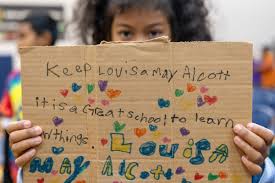 Keep Louisa may Alcott
it is a Great school to learn
things. Louisa
MAY ALCT